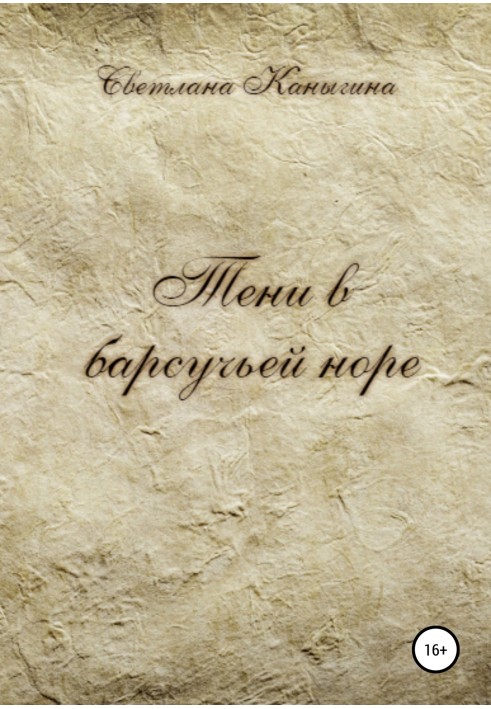 Светлана Каныгина
Тени в
барсучьей норе
16+